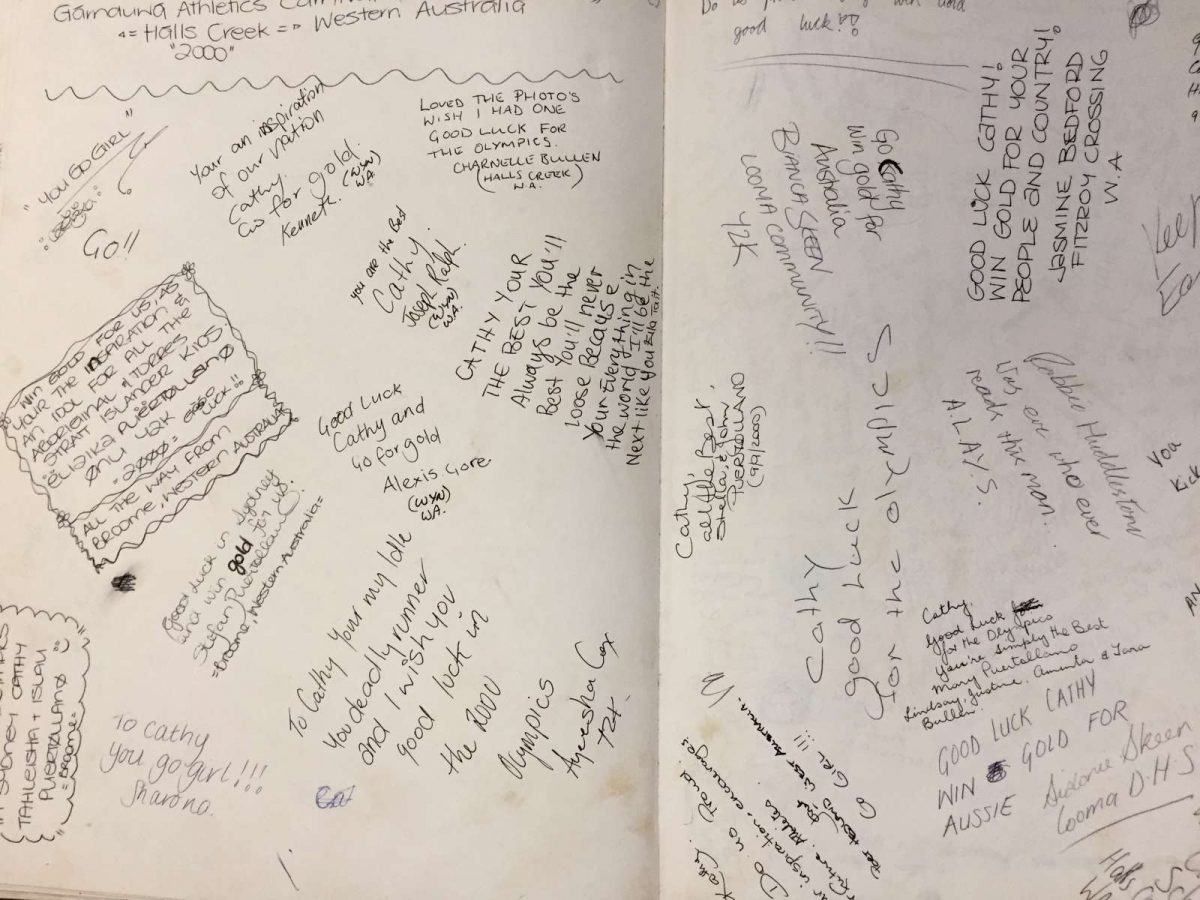 Gamduwa Athletics
Halls Creek => Western Australia
"2000"
"YOU GO GIRL"
GO!!
Your an inspiration
of our nation
Cathy.
Go for gold.
Kenneth. (WYN)
W.A.
LOVED THE PHOTO'S
WISH I HAD ONE
GOOD LUCK FOR
THE OLYMPICS.
CHARNELLE BULLEN
(HALLS CREEK)
W.A.
you are the Best
Cathy.
Joseph Ralph.
(WYN)
W.A.
CATHY YOUR
THE BEST YOU'll
Always be the
Best You'll never
loose Because
Your Everything in
the world I'll be the
Next like you Ella Tait.
WIN GOLD FOR US, AS
YOUR THE INSPIRATION &
AN IDOL FOR ALL THE
ABORIGINAL & TORRES
STRAIT ISLANDER KIDS
PUERTOLLANO
42K
"2000" GOOD LUCK!!
ALL THE WAY FROM
BROOME, WESTERN AUSTRALIA
Good Luck
Cathy and
Go for gold
Alexis Gore
(WYN)
WA.
Good Luck in Sydney
and win gold for us.
Stefan Puertollano
=Broome, Western Australia=
To Cathy Your my Idle
You deadly runner
and I wish you
good luck in
the 2000
Olympics
Ayeesha Cox
SYDNEY CATHY
TAHLEISHA + ISLAU
PUERTOLLANO
=BROOME=
To Cathy
you go girl!!!
Sharona.
good luck
Go Cathy
win gold for
Australia
BIANCA SKEEN
LOOMA COMMUNITY!!
42K
GOOD LUCK CATHY!
WIN GOLD FOR YOUR
PEOPLE AND COUNTRY!
JASMINE BEDFORD
FITZROY CROSSING
W.A
Keep
Cathy,
all the Best,
Stella & John
PUERTOLLANO
(9/9/2000)
Robbie Huddleston
Was ever who ever
reads this man.
ALAYS.
You
Kick
Cathy
Good Luck
for the olympics
Cathy.
Good Luck
for the Olympics
You're simply the Best
Mary Puertollano
Lindsay, Justine, Aminta & Tara
Bullen.
GOOD LUCK CATHY
WIN GOLD FOR
AUSSIE
Sidonie Skeen
Looma D.H.S
GO GIRL!!!
PORT HEDLAND WEST AUSTRALIA.
Future Athletes
inspiration + encourage
Do us Proud.
Kathy.
Halls